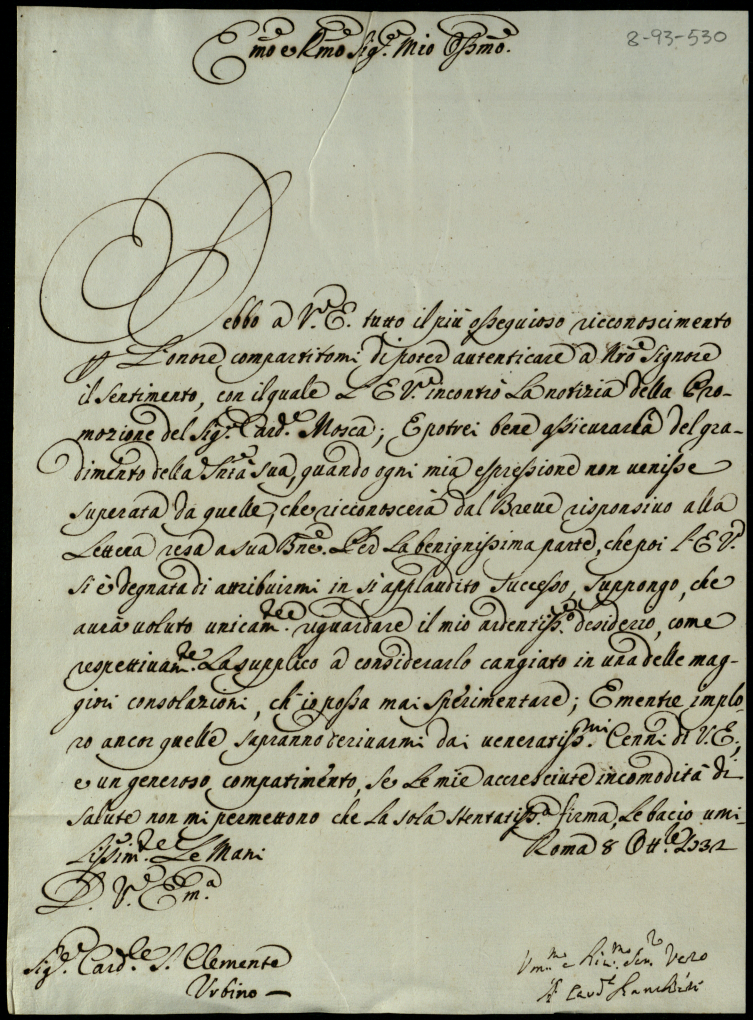 8-93-530
Emo e Rmo Sigr. Mio Ossmo.
Debbo a Vra. E. tutto il più ossequioso ricconoscimento
p L'onore compartitomi di poter autenticare a Nro Signore
il Sentimento, con il quale L'E Va. incontrò La notizia della Pro-
mozione del Sigr. Card.e Mosca; E potrei bene assicurarla del gra-
dimento della Sntà sua, quando ogni mia espressione non venisse
superata da quelle, che ricconoscerà dal Breve risponsivo alla
Lettera resa a sua Bne. Per La benignissima parte, che poi l'E Va.
si è degnata di attribuirmi in sì applaudito Successo, suppongo, che
avrà voluto unicamte. riguardare il mio ardentissmo. desiderio, come
respettivamte. La supplico a considerarlo cangiato in una delle mag-
giori consolazioni, ch'io possa mai sperimentare; E mentre implo-
ro ancor quelle sapranno derivarmi dai veneratissmi. Cenni di V. E.,
e un generoso compatimento, se Le mie accresciute incomodità di
salute non mi permettono che La sola stentatissa. firma, Le bacio umi-
lissimte. Le Mani
Roma 8 Ottle 1732
D. Va. Ema.
Sigr. Card.le S. Clemente
Urbino —
Vmo e Ser. Vero
Il Card.